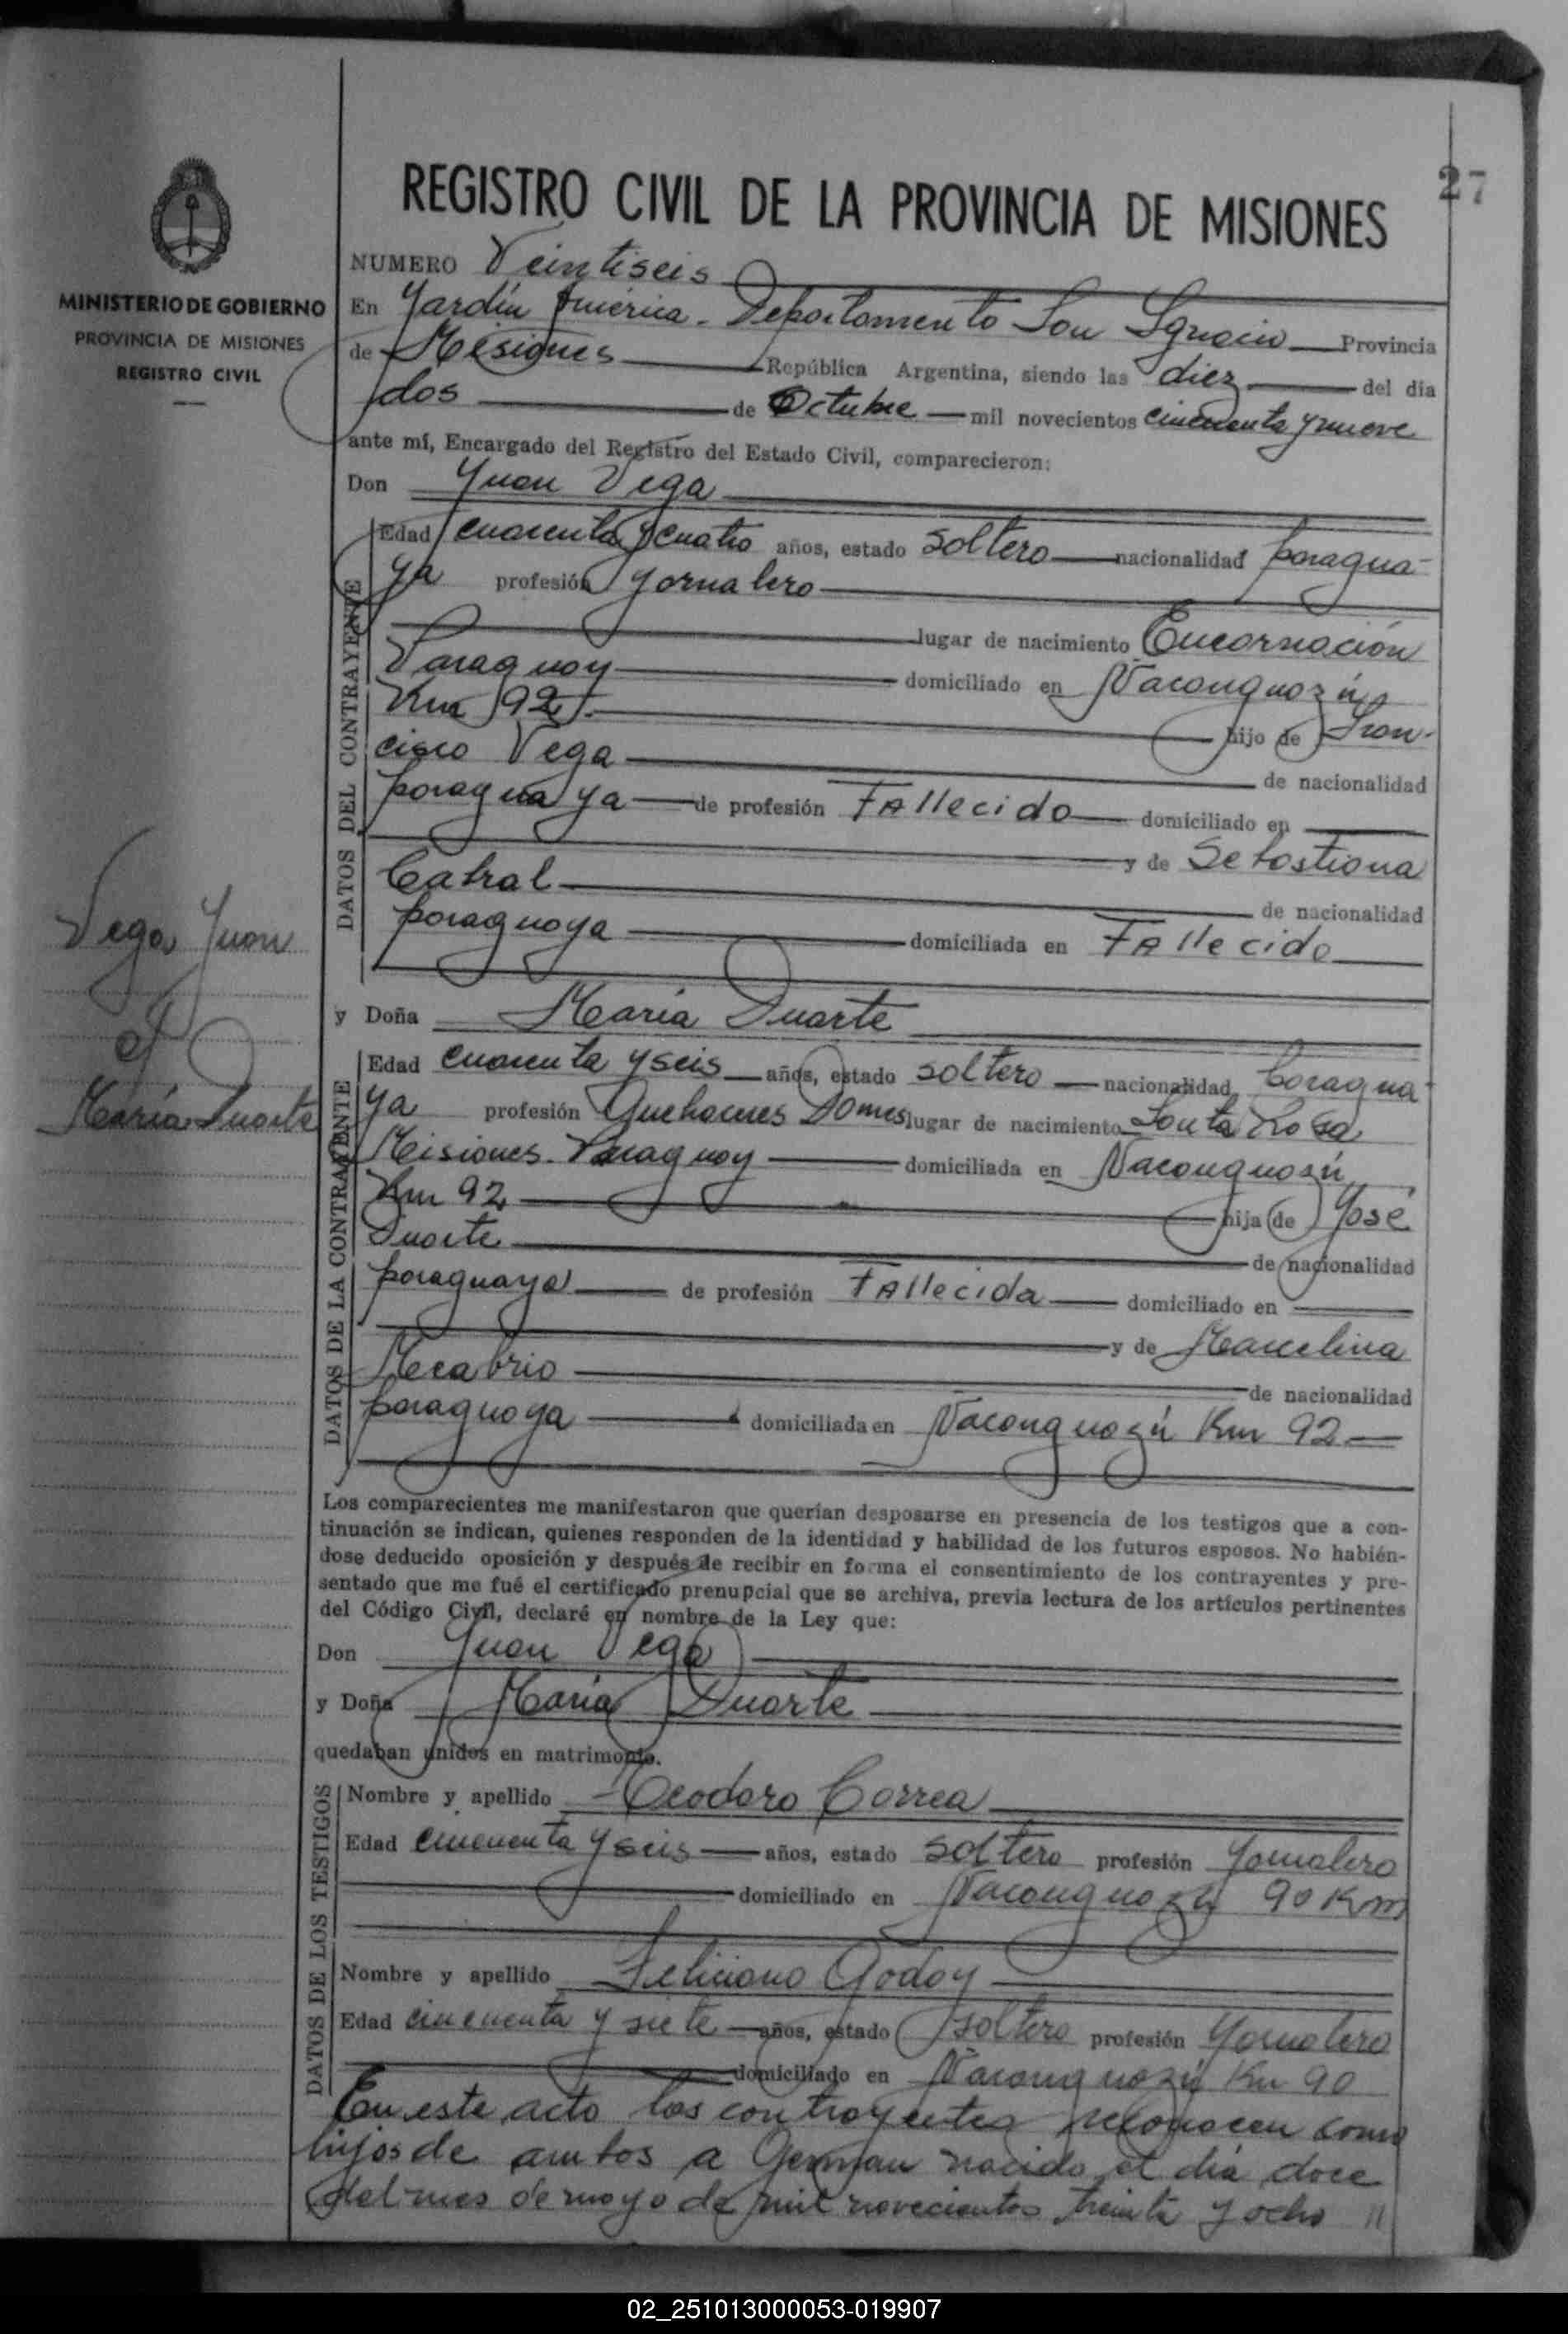 27
REGISTRO CIVIL DE LA PROVINCIA DE MISIONES
MINISTERIO DE GOBIERNO
PROVINCIA DE MISIONES
REGISTRO CIVIL
NUMERO Veintiseis
En Jardín América - Departamento San Ignacio Provincia
de Misiones República Argentina, siendo las diez del día
dos de Octubre mil novecientos cincuenta y nueve
ante mí, Encargado del Registro del Estado Civil, comparecieron:
Don Juan Vega
DATOS DEL CONTRAYENTE
Edad cuarenta y cuatro años, estado soltero nacionalidad paragua-
ya profesión jornalero
lugar de nacimiento Encarnación
Paraguay domiciliado en Ñacanguazú
Km 92. hijo de Fran-
cisco Vega de nacionalidad
paraguaya de profesión Fallecido domiciliado en
y de Sebastiana
Cabral de nacionalidad
paraguaya domiciliada en Fallecido
Vega Juan
c/
María Duarte
y Doña María Duarte
DATOS DE LA CONTRAYENTE
Edad cuarenta y seis años, estado soltero nacionalidad paragua-
ya profesión Quehaceres Domes lugar de nacimiento Santa Rosa
Misiones - Paraguay domiciliada en Ñacanguazú
Km 92 hija de José
Duarte de nacionalidad
paraguaya de profesión Fallecida domiciliado en
y de Marcelina
de nacionalidad
paraguaya domiciliada en Ñacanguazú Km 92
Los comparecientes me manifestaron que querían desposarse en presencia de los testigos que a con-
tinuación se indican, quienes responden de la identidad y habilidad de los futuros esposos. No habién-
dose deducido oposición y después de recibir en forma el consentimiento de los contrayentes y pre-
sentado que me fué el certificado prenupcial que se archiva, previa lectura de los artículos pertinentes
del Código Civil, declaré en nombre de la Ley que:
Don Juan Vega
y Doña María Duarte
quedaban unidos en matrimonio.
DATOS DE LOS TESTIGOS
Nombre y apellido Teodoro Correa
Edad cincuenta y seis años, estado soltero profesión jornalero
domiciliado en Ñacanguazú 90 Km
Nombre y apellido Feliciano Godoy
Edad cincuenta y siete años, estado soltero profesión jornalero
domiciliado en Ñacanguazú Km 90
En este acto los contrayentes reconocen como
hijos de ambos a German nacido el día doce
del mes de mayo de mil novecientos treinta y ocho //
02_251013000053-019907